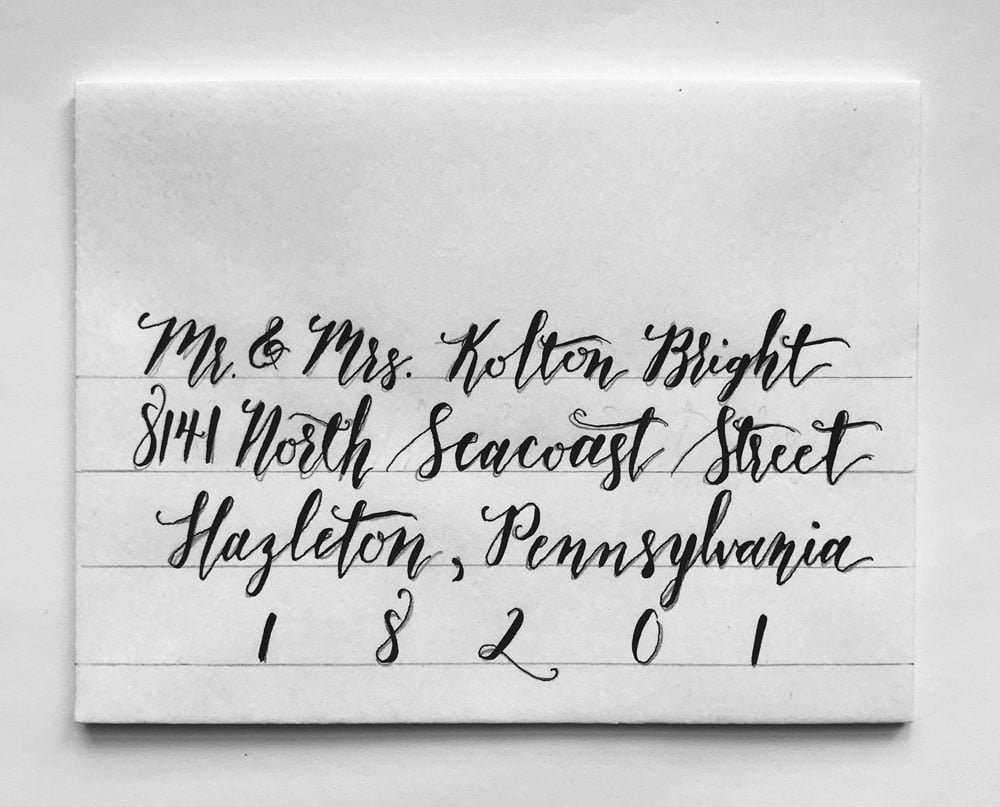 Mr. & Mrs. Kolton Bright
8141 North Seacoast Street
Hazleton, Pennsylvania
1 8 2 0 1